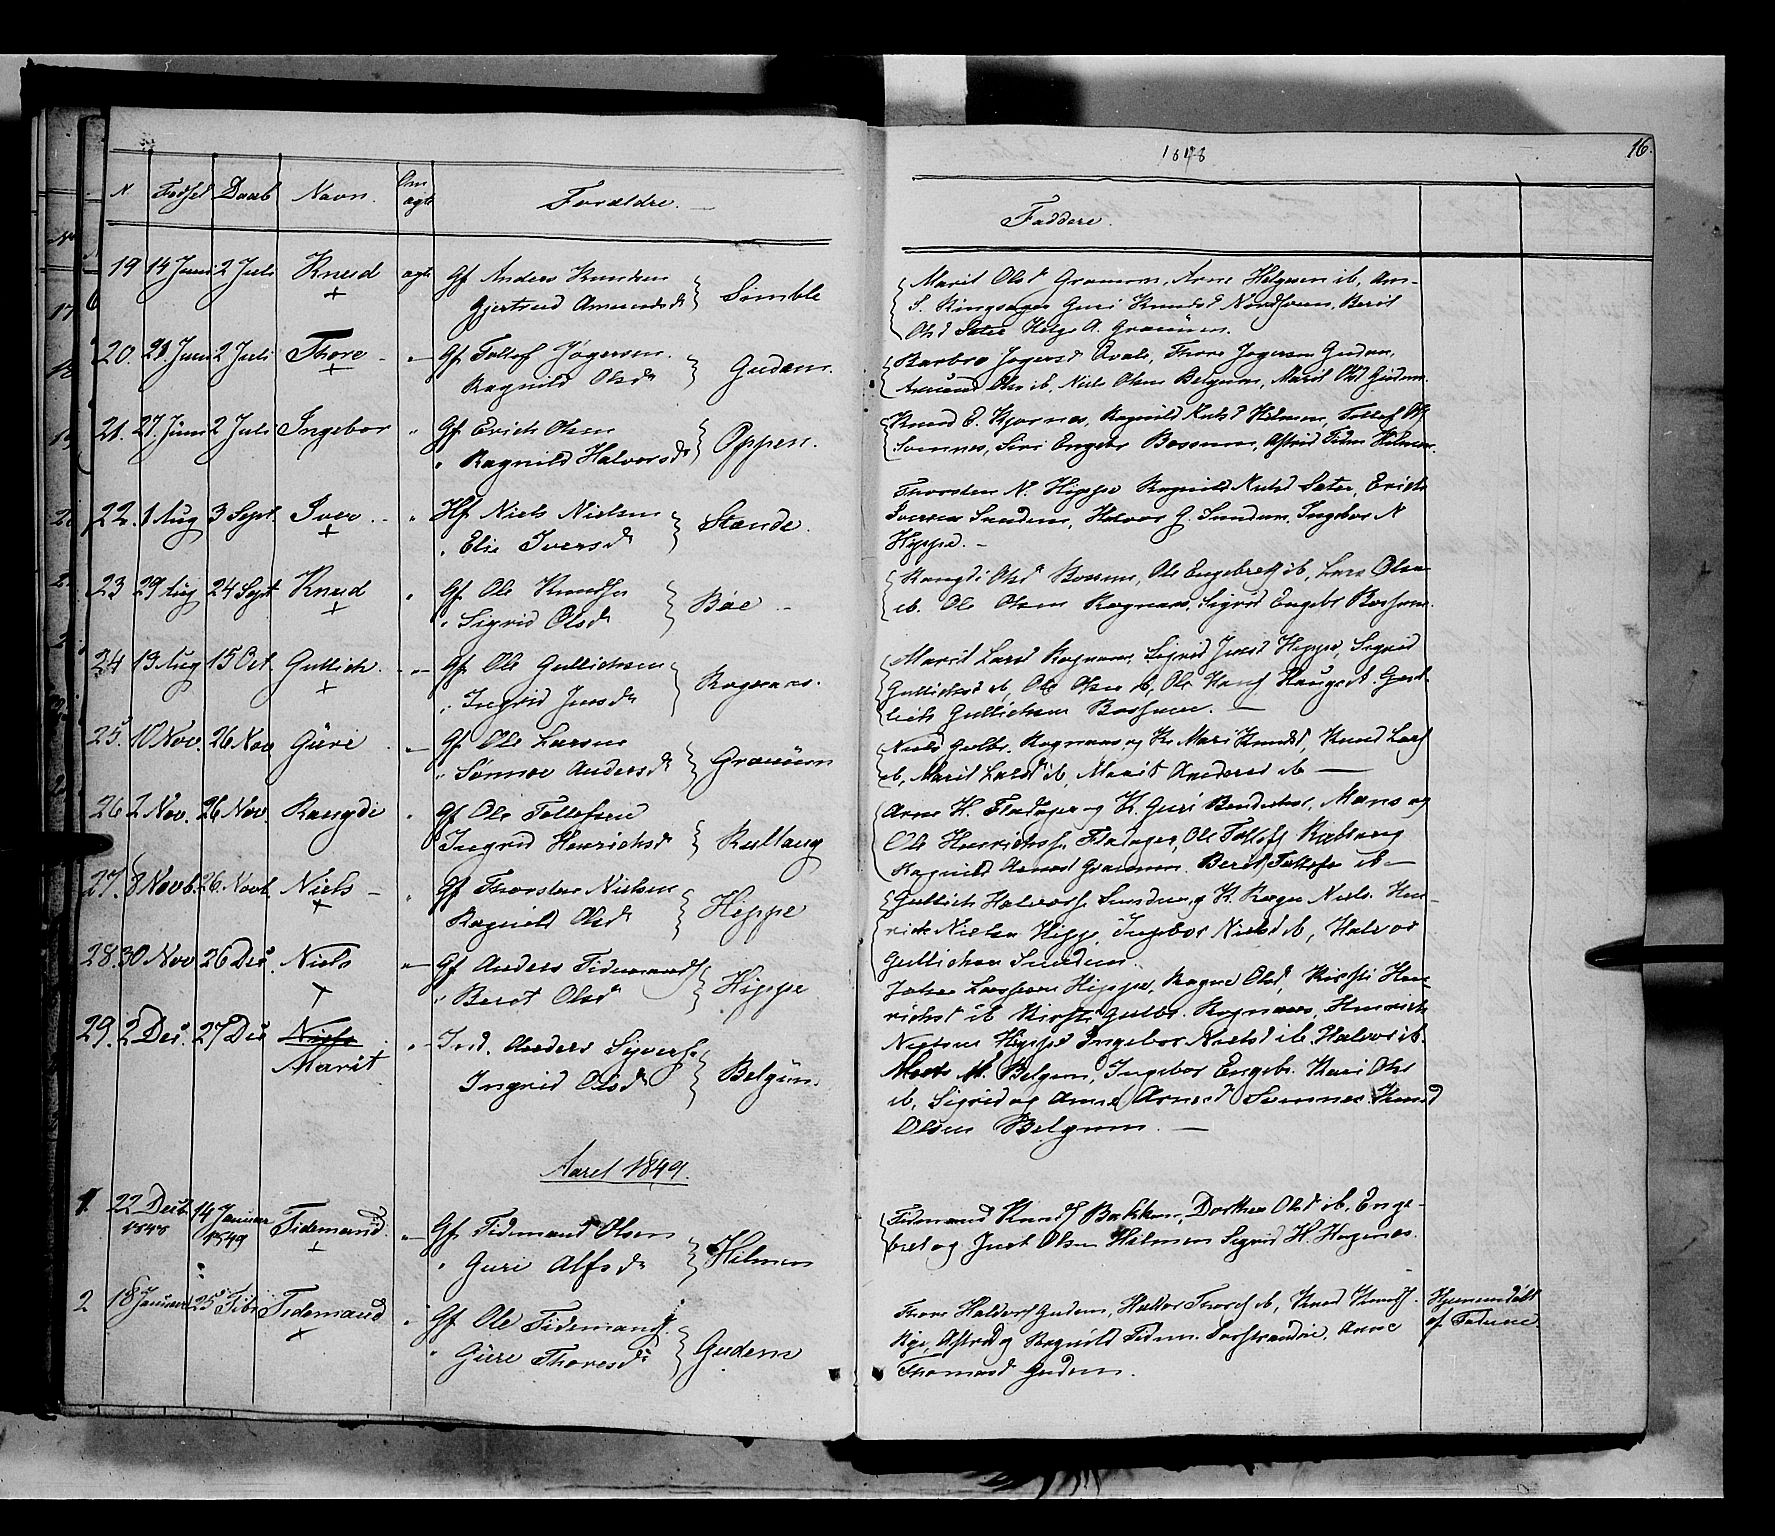 1848
16.
N. Fødsel Daab Navn. Om ægte Forældre. Faddere.
19 14 Juni 2 Juli Knud ægte Gf Anders Knudsen
Gjertrud Amundsd. } Simble
Marit Olsd Granum, Arne Helgesen ib,
Guri Knudsd Nordsveen, Berit
Olsd Sæter Helge A. Granum.
20. 21 Juni 2 Juli Thore - " Gf. Tollef Jøgersen.
Ragnild Olsd. } Gudem.
Barbro Jøgersd Qvale, Thore Jøgersen Gudem,
Amund Olsen ib, Niels Olsen Belgum, Marit Olsd Gudem.
21. 27. Juni 2 Juli Ingebor " Gf. Erich Olsen
" Ragnild Halvorsd. } Oppen.
Knud E. Kjørnes, Ragnild Knudsd Hilmen, Tollef
Svennes, Siri Engebr Bossum, Astrid Tidm Hilmen.
22. 1 Aug 3 Sept. Iver - " Hf. Niels Nielsen
" Elie Iversd. } Stende.
Thorsten N. Hippe Ragnild Sæter, Erich
Iversen Sundem, Halvor G. Sundem, Ingebor N
Hippe. -
23 29 Aug 24 Sept. Knud " Gf. Ole Knudsen
" Sigrid Olsd. } Bøe -
Rangdi Olsd Bossum, Ole Engebretsen ib, Lars Olsen
ib. Ole Olsen Rognaas, Sigrid Engebr Bossum.
24 13 Aug 15 Oct. Gullich. " Gf. Ole Gullichsen
" Ingrid Jensd. } Rognaas.
Marit Larsd Rognaas, Sigrid Jensd Hippe, Sigrid
Gullichsd ib, Ole Olsen ib, Ole Haugerd. Gul-
lich Gullichsen Bossum. -
25. 10 Nov. 26 Nov Guri " Gf. Ole Larsen
" Sønnøv Andersd. } Granum
Niels Gulbr. Rognaas og K. Mari Knudsd, Knud Lars
ib, Marit Larsd ib, Marit Andersd ib -
26 2 Nov. 26 Nov. Rangdi " Gf Ole Tollefsen
Ingrid Henrichsd. } Rullang
Arne H. Fladager og K. Guri Mons og
Ole Henrichs. Fladager, Ole Tollefs Rullang
Ragnild Granum. Berit Tollefsd ib -
27. 8 Novb. 26. Novb. Niels - " Gf. Thorsten Nielsen
Ragnild Olsd. } Hippe
Gullich Halvors. Sundem og K. Ragne Niels. Hen-
rich Nielsen Hippe, Ingebor Nielsd ib, Halvor
Gullichsen Sundem.
28. 30 Nov 26 Dec. Niels " Gf. Anders Tidemands.
" Berit Olsd } Hippe
Larssen Hippe, Ragne Olsd, Kirsti Hen-
richsd ib Kirsti Gulbr. Rognaas, Henrich
Nielsen Hippe Ingebor Nielsd ib. Halvor ib.
29. 2 Dec. 27 Dec Niels " Ind. Anders Syvers.
Marit Ingrid Olsd. } Belgum
M. Belgum, Ingebor Engebr. Kari Olsd
ib, Sigrid og Anne Arnesd Svennes. Knud
Olsen Belgum. -
Aaret 1849.
1. 22 Decb. 1848 14 Januar 1849 Tidemand. " Gf. Tidemand Olsen
" Guri Alfsd. } Hilmen
Tidemand Knuds Bakken, Dorthea Olsd ib, Enge-
bret og Joet Olsen Hilmen Sigrid H. Hagenæs.
2 18 Januar 25 Febr Tidemand " Gf Ole Tidemands.
" Guri Thoresd. } Gudem
Thore Haldors Gudem, Haldor Thores ib, Knud Knuds.
Rye, Astrid og Ragnild Tidm. Anne
Thomasd Gudem.
Hjemmedøbt
af Faderne.